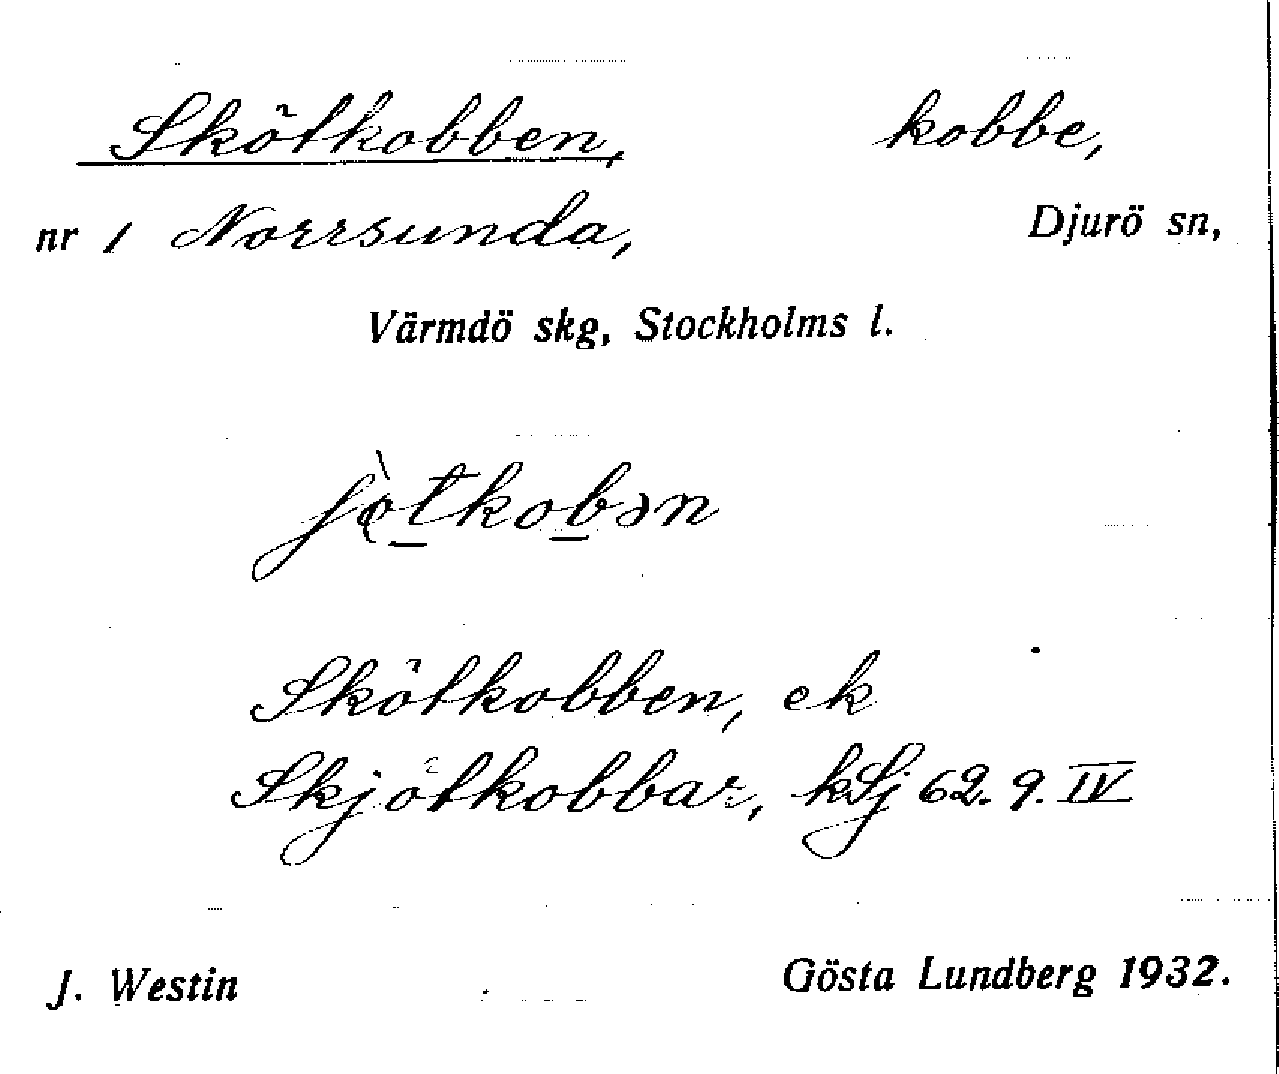 Skötkobben, kobbe,
nr 1 Norrsunda, Djurö sn,
Värmdö skg, Stockholms l.
ʃö̀tkobən
Skötkobben, ek
Skjötkobbar, kSj 62. 9. IV
J. Westin Gösta Lundberg 1932.